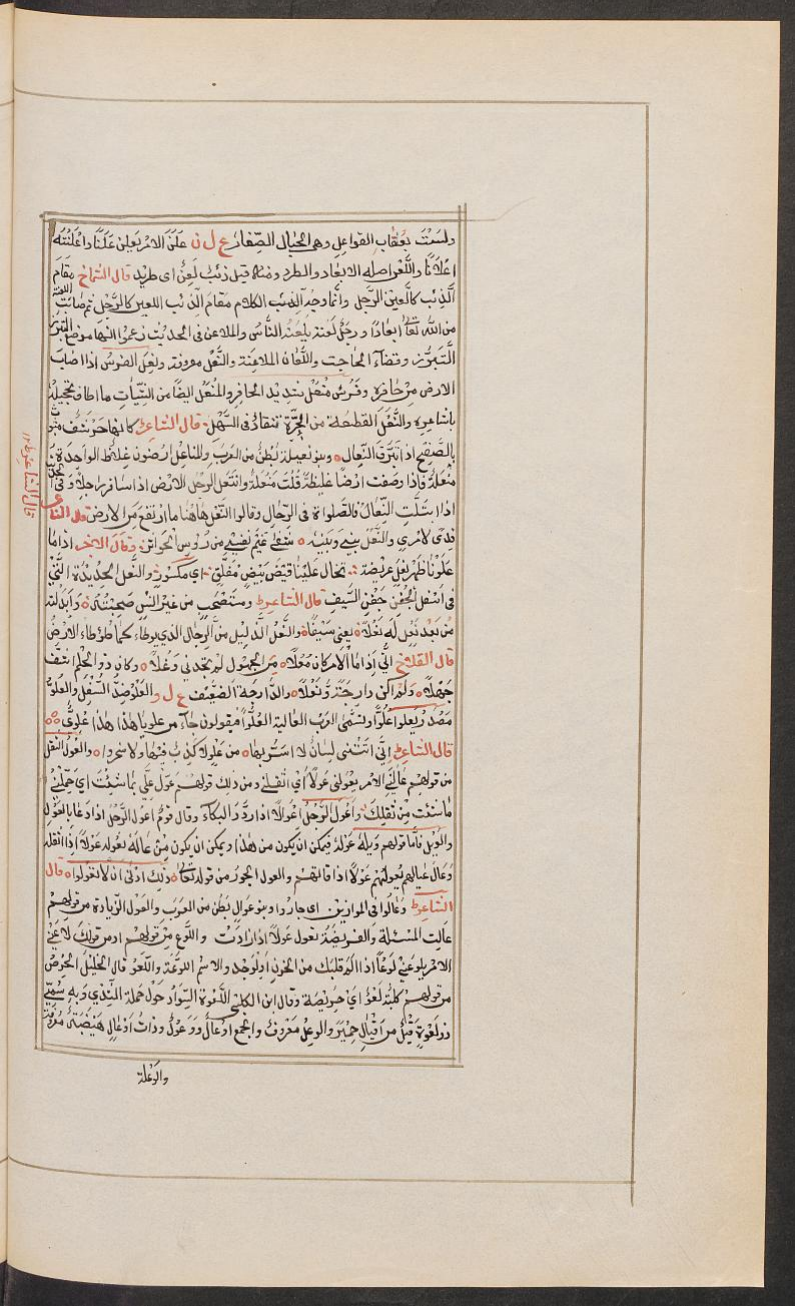 وليست بعقاب القواعل وهى الجبال الصّغار ع ل ن علن الامر يعلن علنا واعلنته
اعلانا واللّعن اصله الابعاد والطرد ومنه قيل ذئب لعين اى طريد قال الشماخ مقام
الذئب كالرجل اللعين وانما وجه الكلام مقام الذئب اللعين كالرجل ثم صارت اللعنة
من الله تعا ابعادا ورجل لعنة يلعنه الناس والملاعن فى الحديث زعموا انها مواضع التبرز
التبرّز وقضاء الحاجة واللّعان الملاعنة والنّعل معروفة ونعل الفرس اذا اصاب
الارض من حافره وفرس منعل شديد الحافر والمنعل ايضا من الشيات ما اطاف تحجيله
باشاعره والنّعل القطعة من الحرّة تنقاد فى السّهل قال الشاعر كانها حرشف مبثوث
بالصّفيح اذا تبرق النّعال وبنو نعيلة بطن من العرب والمناعل ارضون غلاظ الواحدة
منعلة فاذا وصفت ارضا غليظة قلت منعلة وانتعل الرجل الارض اذا سافر راجلا وفى الحديث
اذا ابتلّت النّعال فالصلوة فى الرحال وقالوا النّعل هاهنا ما ارتفع من الارض قال الشاعر
قال الشاعر
فدى لامرئ والنّعل بينى وبينه شفى غيم نفسى من رؤوس الحواثر وقال الاخر اذا ما
علونا ظهر نعل عريضة تخال علينا قيض بيض مفلّق اى مكسور والنّعل الحديدة التى
فى اسفل الجفن جفن السّيف قال الشاعر ومنتضحب من غير النسل صحبته وابدلته
من بعد نعل له نعلا يعنى سيفا والنّعل الذليل من الرجال الذى يوطاء كما توطاء الارض
قال القلاخ انى اذا ما الامر كان معلا من الجهول لم تجدنى وغلا وكان ذو الحلم اشدّ
جهلا ولم اكن دارجة ونعلا والدّارجة الضعيف ع ل و العلو ضدّ السّفل والعلوّ
مصدر يعلوا علوّا وتسمّى العرب العالية العلوا فيقولون جاء من علو يا هذا هذا علوىّ
قال الشاعر انى اتتنى لسان لا اسرّ بها من علو لا كذب فيها ولا سخر والعول الثقل
من قولهم عالنى الامر يعولنى عولا اى اثقلنى ومن ذلك قولهم عوّل علىّ بما شئت اى حمّلنى
ما شئت من ثقلك واعول الرّجل اعوالا اذا ردّد البكاء وقال قوم اعول الرّجل اذا دعا بالعول
والويل فامّا قولهم ويله عوله فيمكن ان يكون من هذا ويمكن ان يكون من عاله يعوله عولا اذا اثقله
وعال عيالهم يعولهم عولا اذا قاتهم والعول الجور من قوله تعا ذلك ادنى ان لا تعولوا قال
الشاعر وعالوا فى الموازين اى جاروا وبنو عوال بطن من العرب والعول الزّيادة من قولهم
عالت المسئلة والفريضة تعول عولا اذا زادت واللّوع من قولهم او من قولك لاعنى
الامر يلوعنى لوعا اذا الم قلبك من الحزن او الوجد والاسم اللوعة واللّعو قال الخليل الحرص
من قولهم كلبة لعو اى حريصة وقال ابن الكلبى اللّعوة السّواد حول حلمة الثّدى وبه سمّى
ذو لعوة قيل من اقيال حمير والوعل معروف والجمع اوعال ووعول وذات اوعال هضبة معروفة
والوعلة